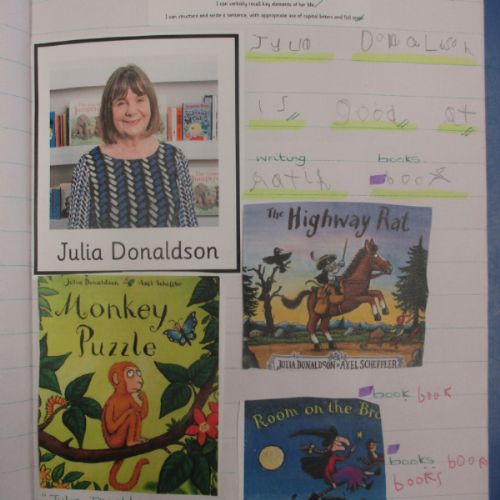 I can verbally recall key elements of her life.
I can structure and write a sentence, with appropriate use of capital letters and full stops
Julia Donaldson
is good at
writing books.
book
Julia Donaldson
The Highway Rat
JULIA DONALDSON AXEL SCHEFFLER
Julia Donaldson Axel Scheffler
Monkey
Puzzle
book book
Room on the Bro
books book
books